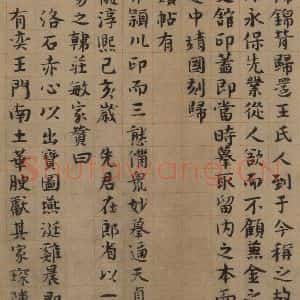 錦背歸還王氏人到于今稱之故
永保先業從人欲而不顧兼金之
館印蓋即當時摹取留内之本
中靖國刻歸
帖有
潁川印而三態備衆妙摹通天真
淳熙己亥歲 先君在郎省以一
易之韓莊敏家贊曰
洛石赤心以出寶圖燕涎雞晨即
有奕王門南土華腴獻其家琛